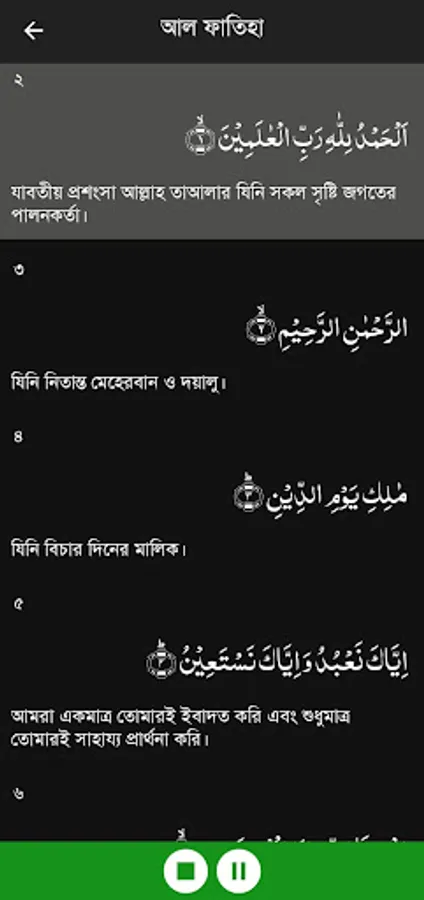 আল ফাতিহা
২
اَلْحَمْدُ لِلّٰهِ رَبِّ الْعٰلَمِيْنَۙ
যাবতীয় প্রশংসা আল্লাহ তাআলার যিনি সকল সৃষ্টি জগতের
পালনকর্তা।
৩
الرَّحْمٰنِ الرَّحِيْمِۙ
যিনি নিতান্ত মেহেরবান ও দয়ালু।
৪
مٰلِكِ يَوْمِ الدِّيْنِؕ
যিনি বিচার দিনের মালিক।
৫
اِيَّاكَ نَعْبُدُ وَاِيَّاكَ نَسْتَعِيْنُؕ
আমরা একমাত্র তোমারই ইবাদত করি এবং শুধুমাত্র
তোমারই সাহায্য প্রার্থনা করি।
৬